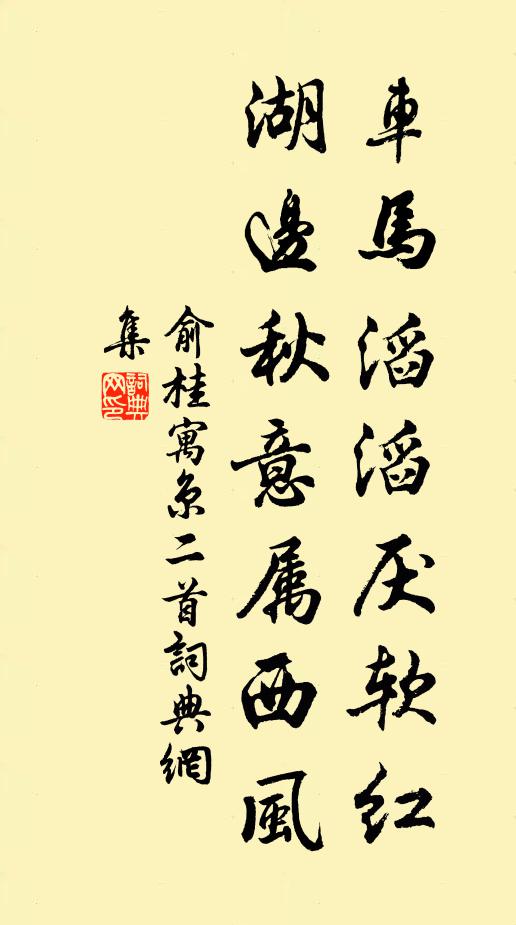 車馬滔滔厌软红
湖邊秋意属西風
俞桂寓京二首詞典網
集
詞典网印